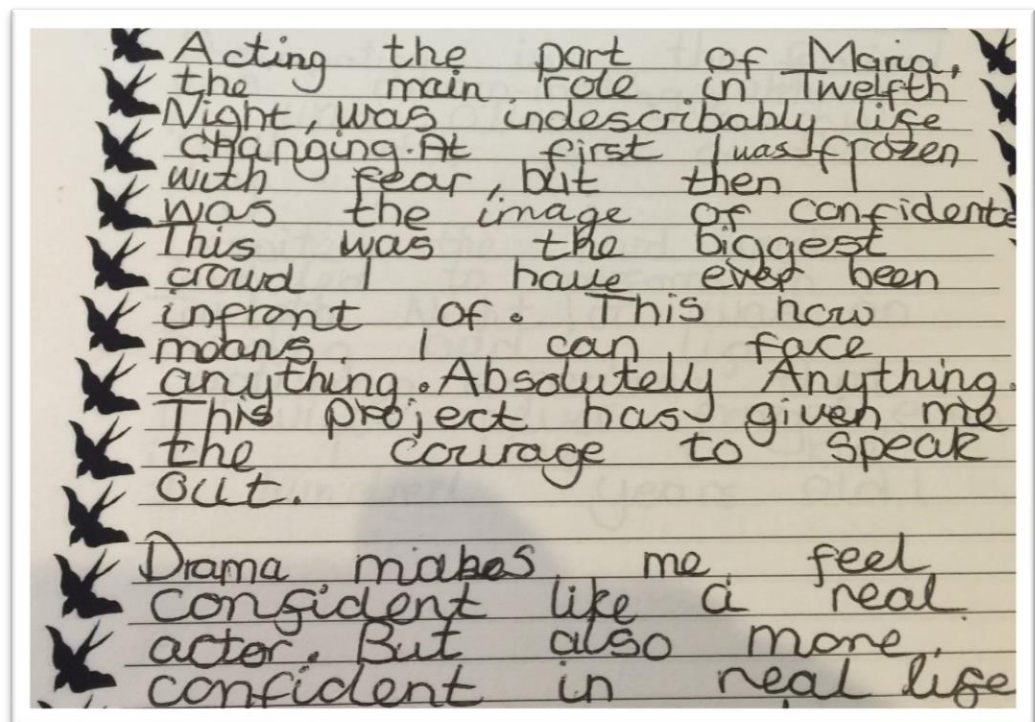 Acting the part of Maria,
the main role in Twelfth
Night, was indescribably life
changing. At first I was frozen
with fear, but then I
was the image of confidente
This was the biggest
crowd I have ever been
infront of. This now
means I can face
anything. Absolutely Anything.
This project has given me
the courage to speak
out.
Drama makes me feel
confident like a real
actor. But also more
confident in real life